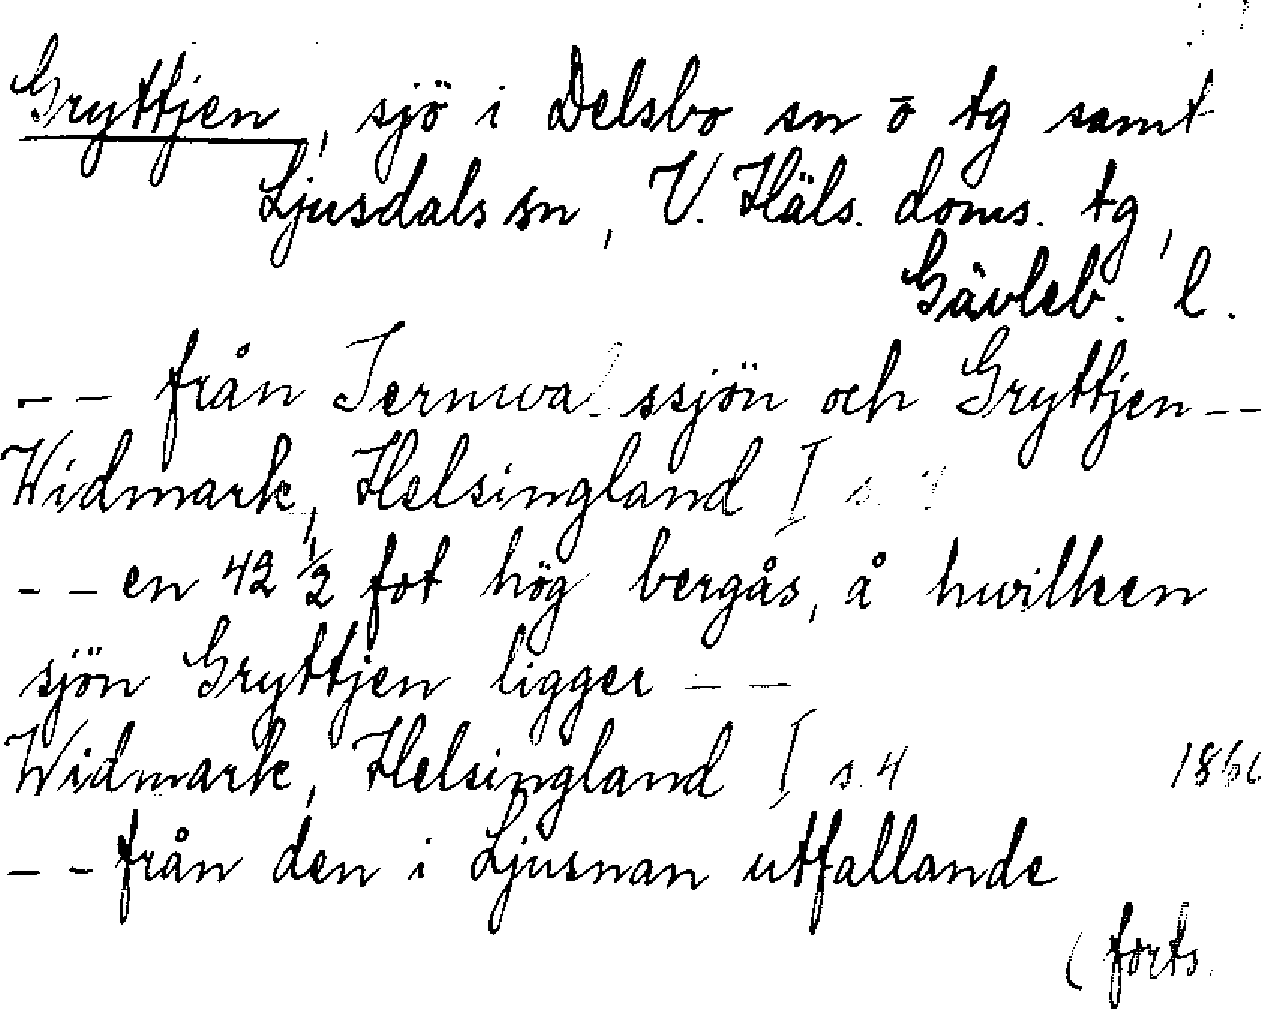 Gryttjen, sjö i Delsbo sn o tg samt
Ljusdals sn, V. Häls. doms. tg,
Gävleb. l.
-- från Ternwa ssjön och Gryttjen --
Widmark, Helsingland I s. 4
-- en 42 1/2 fot hög bergås, å hwilken
sjön Gryttjen ligger --
Widmark, Helsingland I s. 4
-- från den i Ljusnan utfallande
(forts.